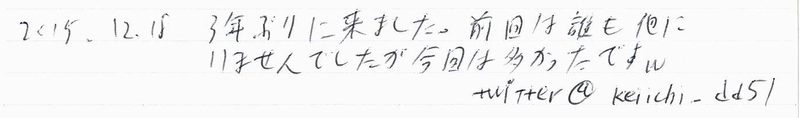 2015.12.18 3年ぶりに来ました。前回は誰も他に
いませんでしたが今回は多かったですw
twitter@keiichi_dd51